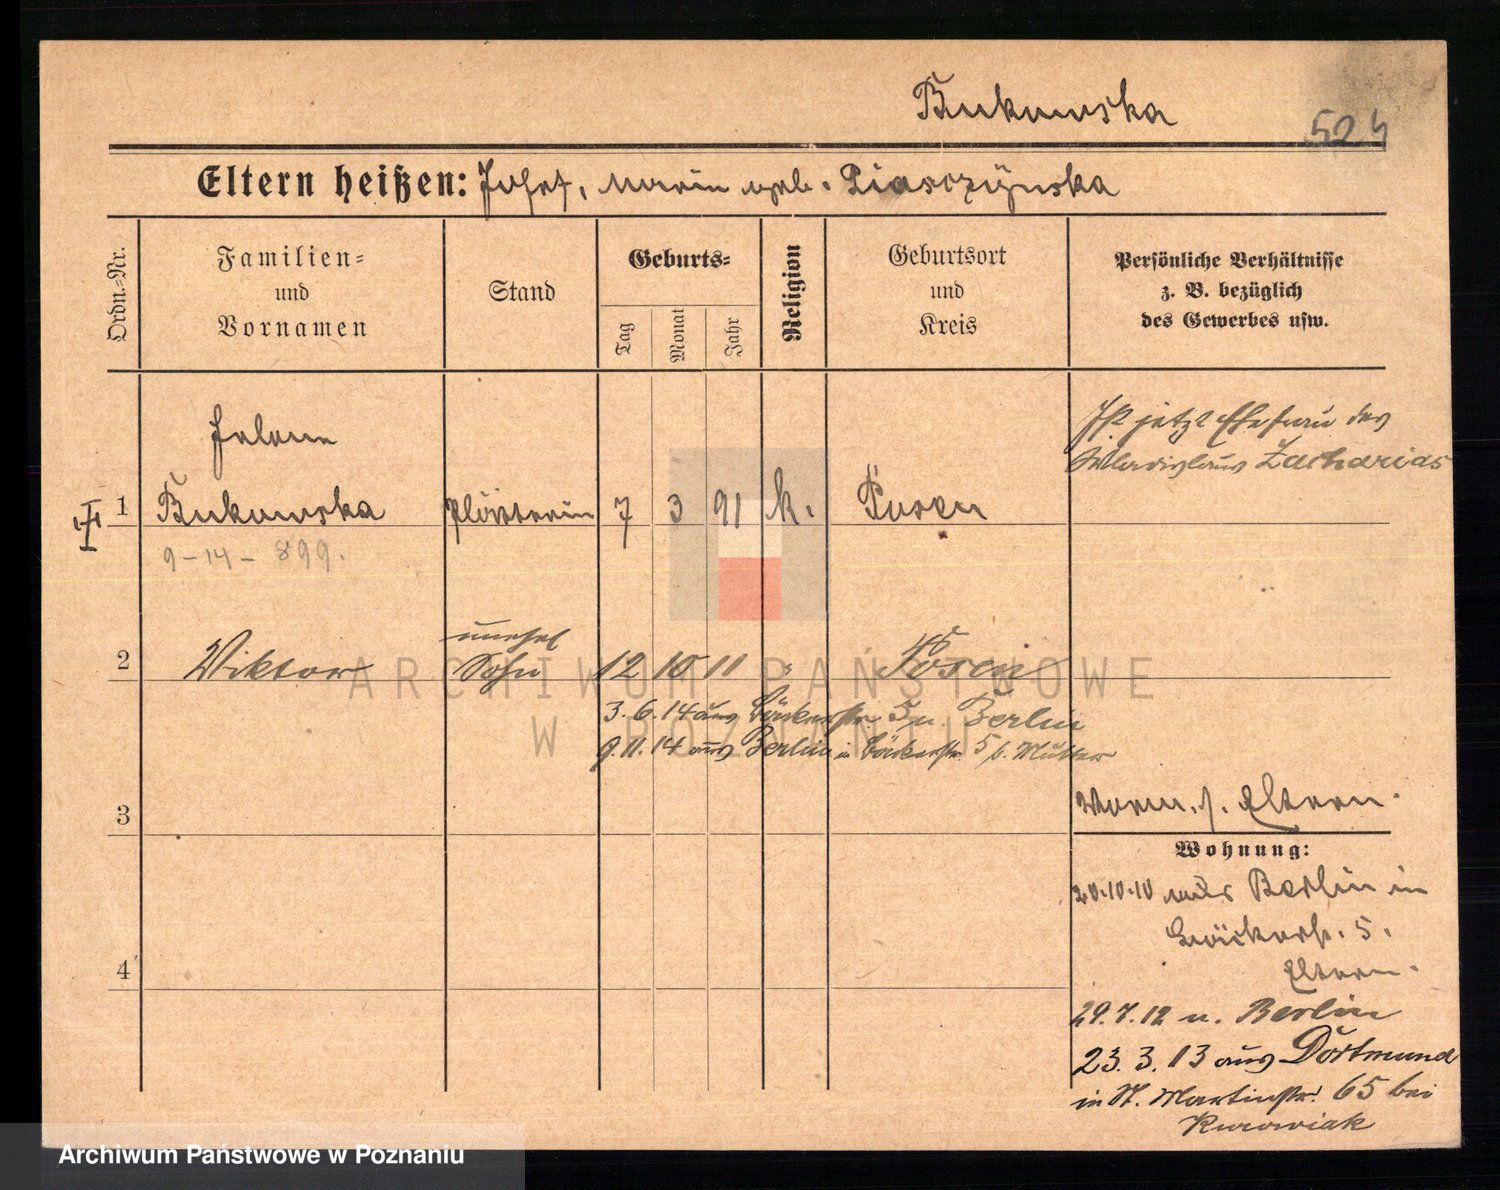 Bukowska
524
Eltern heißen: Josef, Marie geb. Piasczynska
Ordn.-Nr.
Familien-
und
Vornamen
Stand
Geburts-
Tag
Monat
Jahr
Religion
Geburtsort
und
Kreis
Persönliche Verhältnisse
z. B. bezüglich
des Gewerbes usw.
Ist jetzt Ehefrau des
Wladislaus Zacharias
Helene
1 Bukowska Plätterin 7 3 91 k. Posen
9-14-899.
unehel
2 Viktor Sohn 12 10 11 " Posen
3.6.14 aus Bäckerstr 5 n. Berlin
9.11.14 aus Berlin in Bäckerstr. 5 b. Mutter
3
Vorm. s. Eltern.
Wohnung:
20.10.10 aus Berlin in
Bäckerstr. 5.
Eltern.
4
29.7.12 n. Berlin
23.3.13 aus Dortmund
in St. Martinstr. 65 bei
Kurowiak
ARCHIWUM PAŃSTWOWE
W POZNANIU
Archiwum Państwowe w Poznaniu